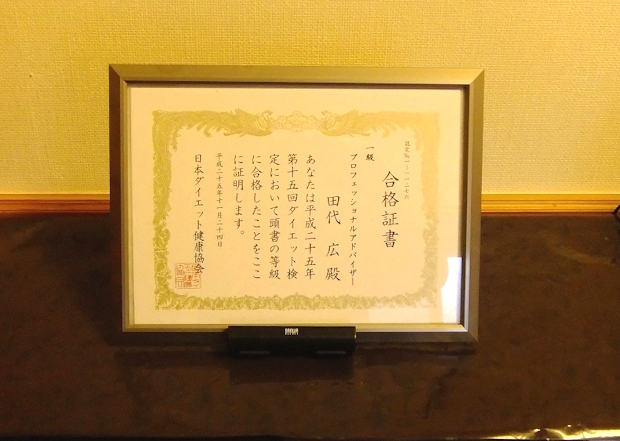 合格証書
一級
プロフェッショナルアドバイザー
田代 広 殿
あなたは平成二十五年
第十五回ダイエット検
定において頭書の等級
に合格したことをここ
に証明します。
平成二十五年十一月二十四日
日本ダイエット健康協会